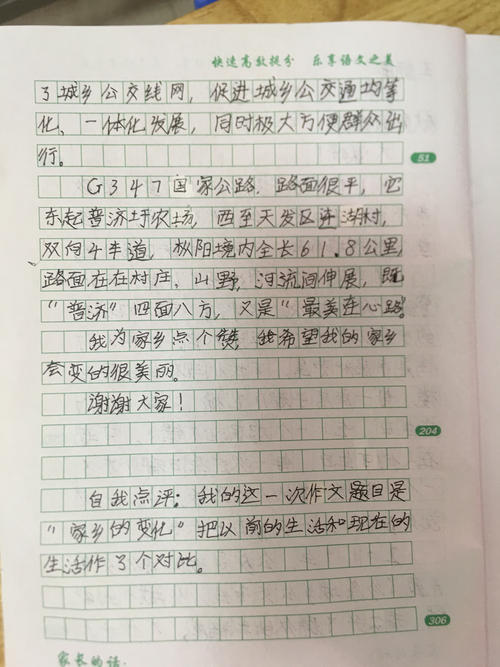 快速高效提分 乐享语文之美
了城乡公交线网，促进城乡公交通均等
化、一体化发展，同时极大方便群众出
行。
51
G347国家公路，路面很平，它
东起普济圩农场，西至天发区进湖村，
双向4车道，枞阳境内全长61.8公里，
路面在在村庄、山野，河流间伸展，既
“普济”四面八方，又是“最美在心路”
我为家乡点个赞，我希望我的家乡
会变的很美丽。
谢谢大家！
204
自我点评：我的这一次作文题目是
“家乡的变化”把以前的生活和现在的
生活作了个对比。
306
家长的话：